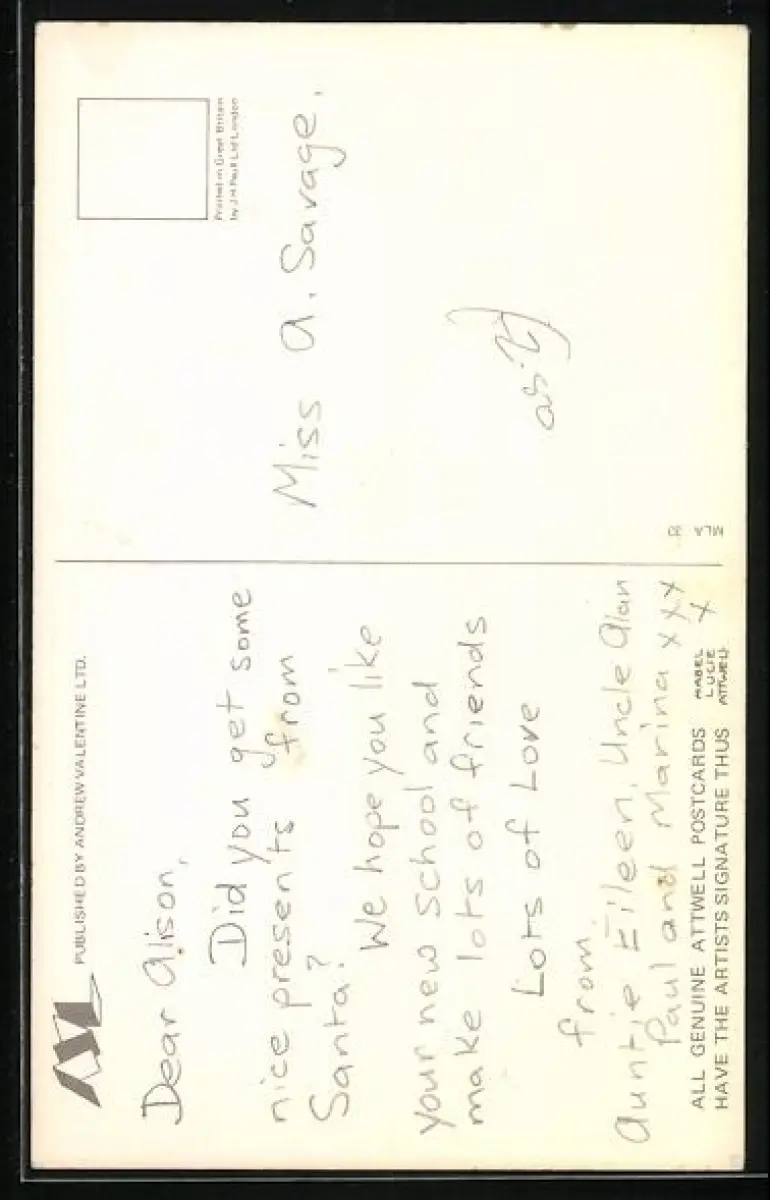 PUBLISHED BY ANDREW VALENTINE LTD.
Dear Alison,
Did you get some
nice presents from
Santa?
We hope you like
your new school and
make lots of friends
Lots of Love
from
Auntie Eileen, Uncle Alan
Paul and Marina xxx
x
ALL GENUINE ATTWELL POSTCARDS
HAVE THE ARTISTS SIGNATURE THUS
MABEL
LUCIE
ATTWELL
Printed in Great Britain
by J H Paull Ltd London
Miss A. Savage.
MLA